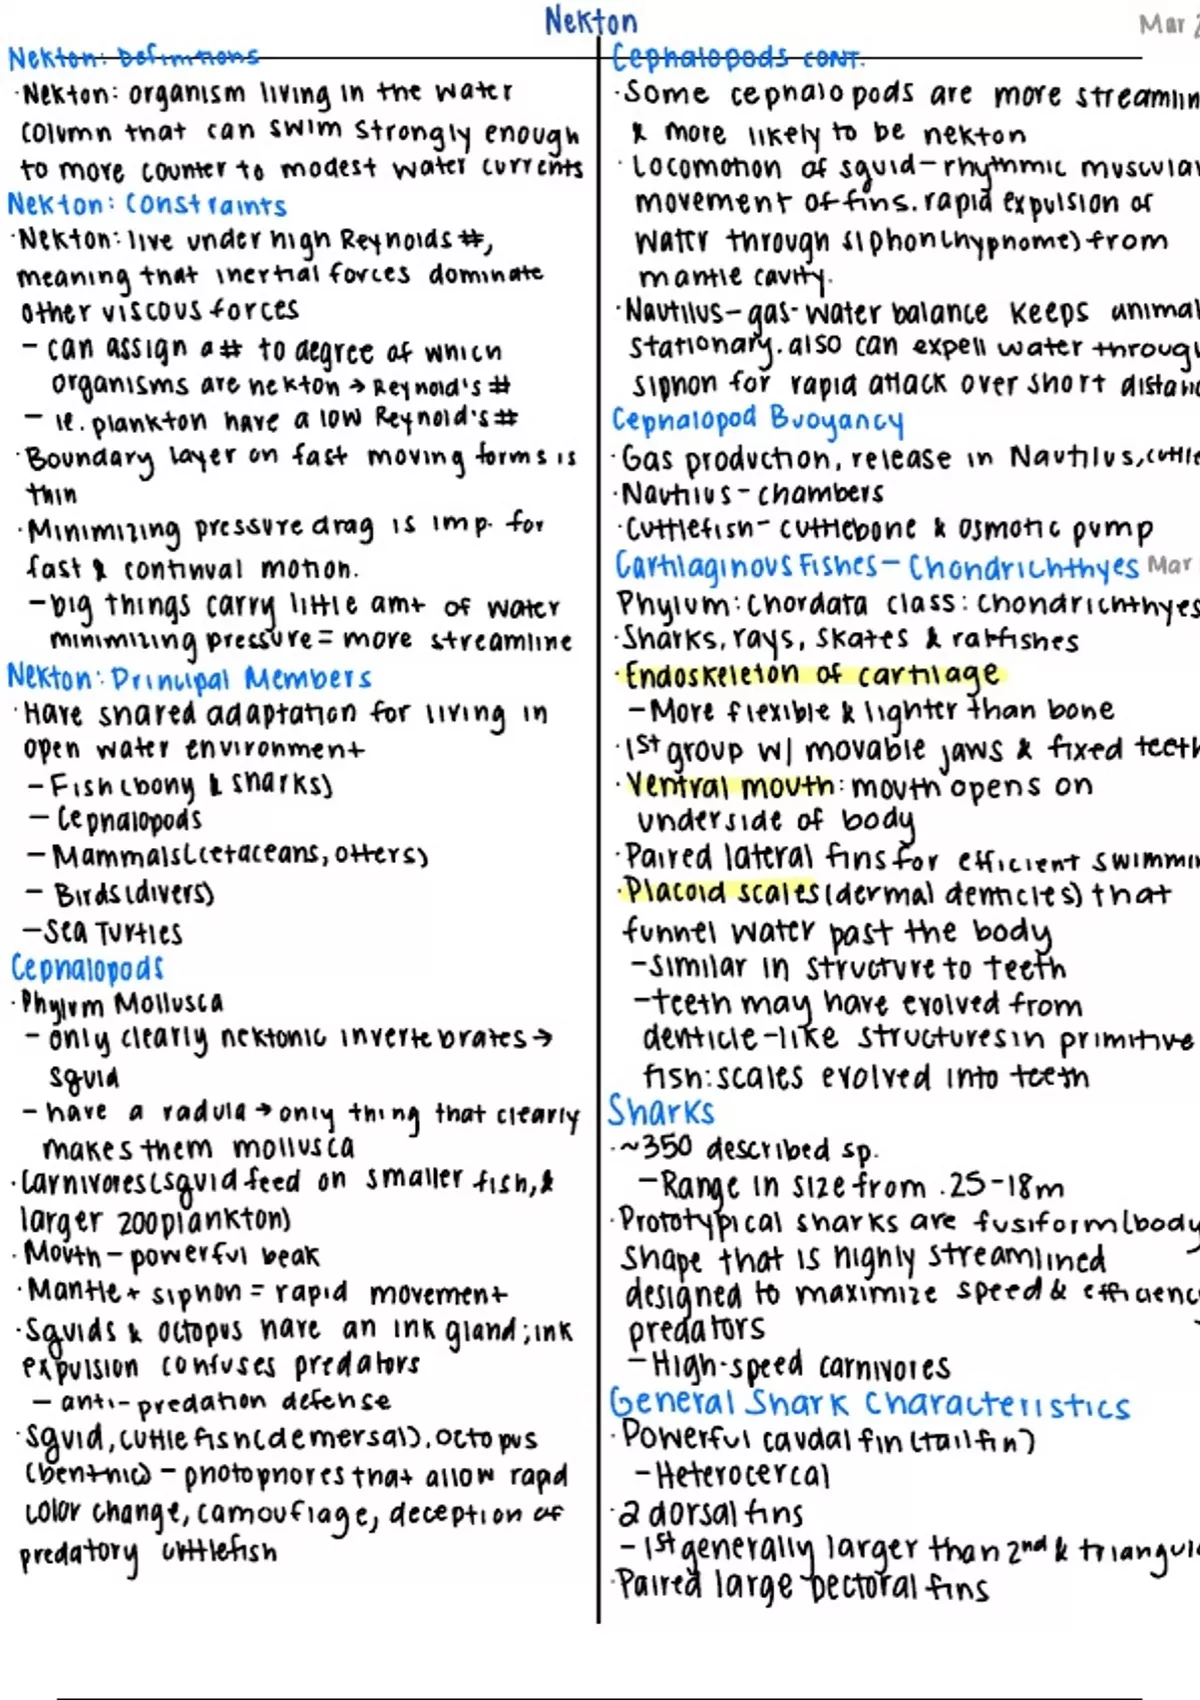 Nekton
Mar 2
Nekton: Definitions
·Nekton: organism living in the water
column that can swim strongly enough
to more counter to modest water currents
Nekton: Constraints
·Nekton: live under high Reynolds #,
meaning that inertial forces dominate
other viscous forces
- can assign a # to degree of which
organisms are nekton → Reynold's #
- ie. plankton have a low Reynold's #
·Boundary layer on fast moving forms is
thin
·Minimizing pressure drag is imp. for
fast & continual motion.
-big things carry little amt of water
minimizing pressure = more streamline
Nekton: Principal Members
·Have shared adaptation for living in
open water environment
- Fish (bony & sharks)
- Cephalopods
- Mammals (cetaceans, otters)
- Birds (divers)
- Sea Turtles
Cephalopods
·Phylum Mollusca
- only clearly nektonic invertebrates →
squid
- have a radula → only thing that clearly
makes them mollusca
·Carnivores (squid feed on smaller fish, &
larger zooplankton)
·Mouth - powerful beak
·Mantle + siphon = rapid movement
·Squids & octopus have an ink gland; ink
expulsion confuses predators
- anti-predation defense
·Squid, cuttlefish (demersal), octopus
(benthic) - photophores that allow rapd
color change, camouflage, deception of
predatory cuttlefish
Cephalopods CONT.
·Some cephalopods are more streamlin
& more likely to be nekton
·Locomotion of squid - rhythmic muscular
movement of fins. rapid expulsion of
water through siphon (hypnome) from
mantle cavity.
·Nautilus - gas-water balance keeps animal
stationary. also can expell water through
siphon for rapid attack over short distanc
Cephalopod Buoyancy
·Gas production, release in Nautilus, cuttle
·Nautilus - chambers
·Cuttlefish - cuttlebone & osmotic pump
Cartilaginous Fishes - Chondrichthyes Mar
Phylum: Chordata class: Chondrichthyes
·Sharks, rays, skates & ratfishes
·Endoskeleton of cartilage
- More flexible & lighter than bone
·1st group w/ movable jaws & fixed teeth
·Ventral mouth: mouth opens on
underside of body
·Paired lateral fins for efficient swimmin
·Placoid scales (dermal denticles) that
funnel water past the body
-similar in structure to teeth
-teeth may have evolved from
denticle-like structures in primitive
fish: scales evolved into teeth
Sharks
·~350 described sp.
- Range in size from .25-18m
·Prototypical sharks are fusiform (body
shape that is highly streamlined
designed to maximize speed & efficienc
predators
- High-speed carnivores
General Shark Characteristics
·Powerful caudal fin (tail fin)
- Heterocercal
·2 dorsal fins
- 1st generally larger than 2nd & triangula
·Paired large pectoral fins